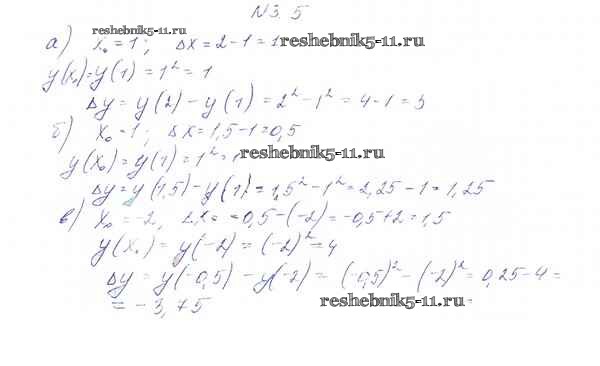 N 3. 5
reshebnik5-11.ru
а) x₀ = 1; Δx = 2 - 1 = 1 reshebnik5-11.ru
y(x₀) = y(1) = 1² = 1
Δy = y(2) - y(1) = 2² - 1² = 4 - 1 = 3
б) x₀ = 1; Δx = 1,5 - 1 = 0,5
y(x₀) = y(1) = 1² = 1 reshebnik5-11.ru
Δy = y(1,5) - y(1) = 1,5² - 1² = 2,25 - 1 = 1,25
в) x₀ = -2, Δx = -0,5 - (-2) = -0,5 + 2 = 1,5
y(x₀) = y(-2) = (-2)² = 4
Δy = y(-0,5) - y(-2) = (-0,5)² - (-2)² = 0,25 - 4 =
= -3,75 reshebnik5-11.ru